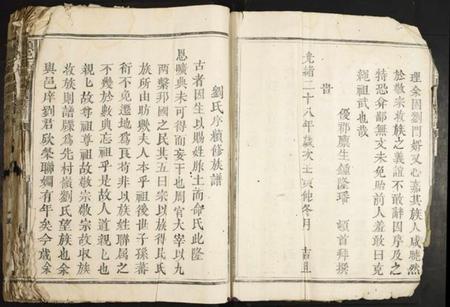 理余因劉門好又心嘉其族人咸聽然
於敬宗收族之義誼不敢辭因序及之
特恐弇鄙無文未免貽前人羞敢曰克
繩祖武也哉
貴
優郡廪生鍾隆璠 頓首拜撰
光緒二十八年歲次壬寅 冬月 吉旦
劉氏序續修族譜
古者因生以賜姓胙土而命氏此隆
恩曠典未可得而妄干也周官大宰以九
兩繫邦國之民其五曰宗以族得民氏
族所由昉歟夫人本乎祖後世子孫蕃
衍不免遷地為良苟非以族姓聯屬之
不幾於數典忘祖乎是故人道親也
親故尊祖尊祖故敬宗敬宗故收族
收族則譜牒為先村嶺劉氏望族也余
與邑庠劉君 榮聯姻有年矣今歲余